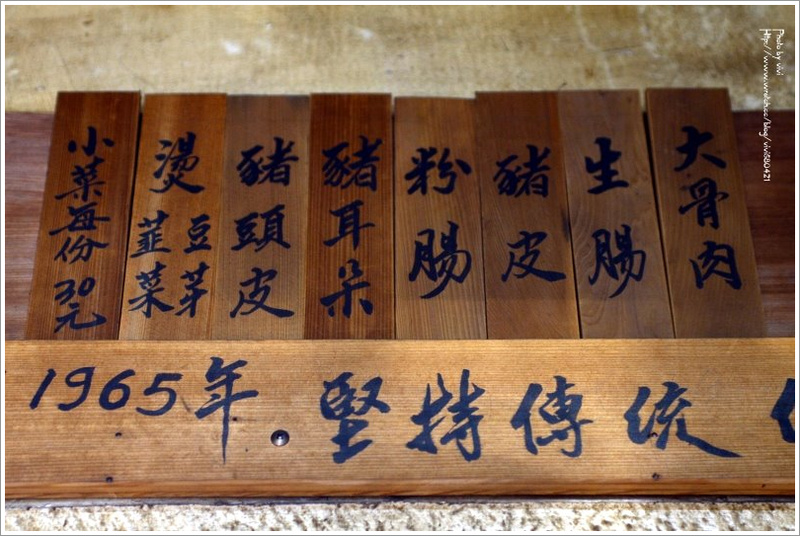 大骨肉
生腸
豬皮
粉腸
豬耳朵
豬頭皮
燙
豆芽
韮菜
小菜每份30元
1965年 堅持傳統
Photo by vivi